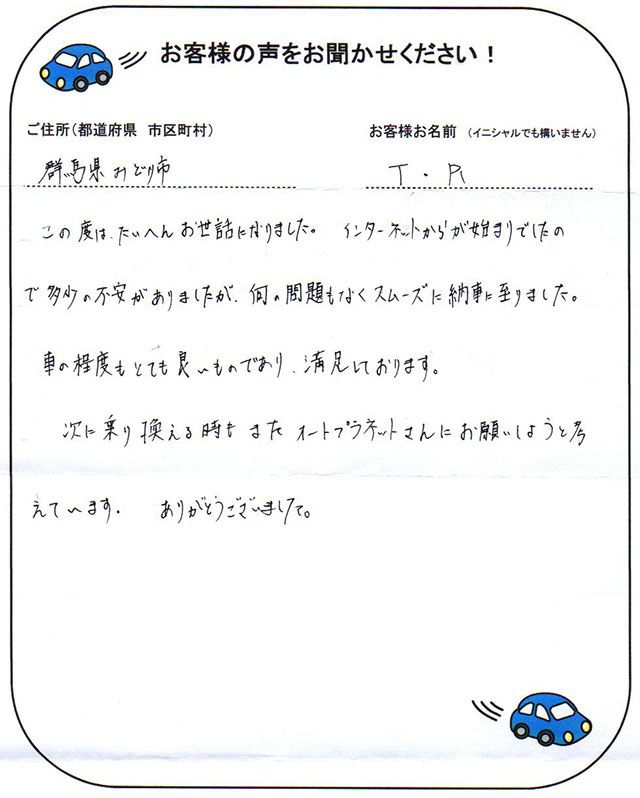 お客様の声をお聞かせください！
ご住所（都道府県 市区町村） お客様お名前 （イニシャルでも構いません）
群馬県みどり市 T・R
この度は、たいへんお世話になりました。 インターネットからが始まりでしたの
で多少の不安がありましたが、何の問題もなくスムーズに納車に至りました。
車の程度もとても良いものであり、満足しております。
次に乗り換える時もまたオートプラネットさんにお願いしようと考
えています。 ありがとうございました。